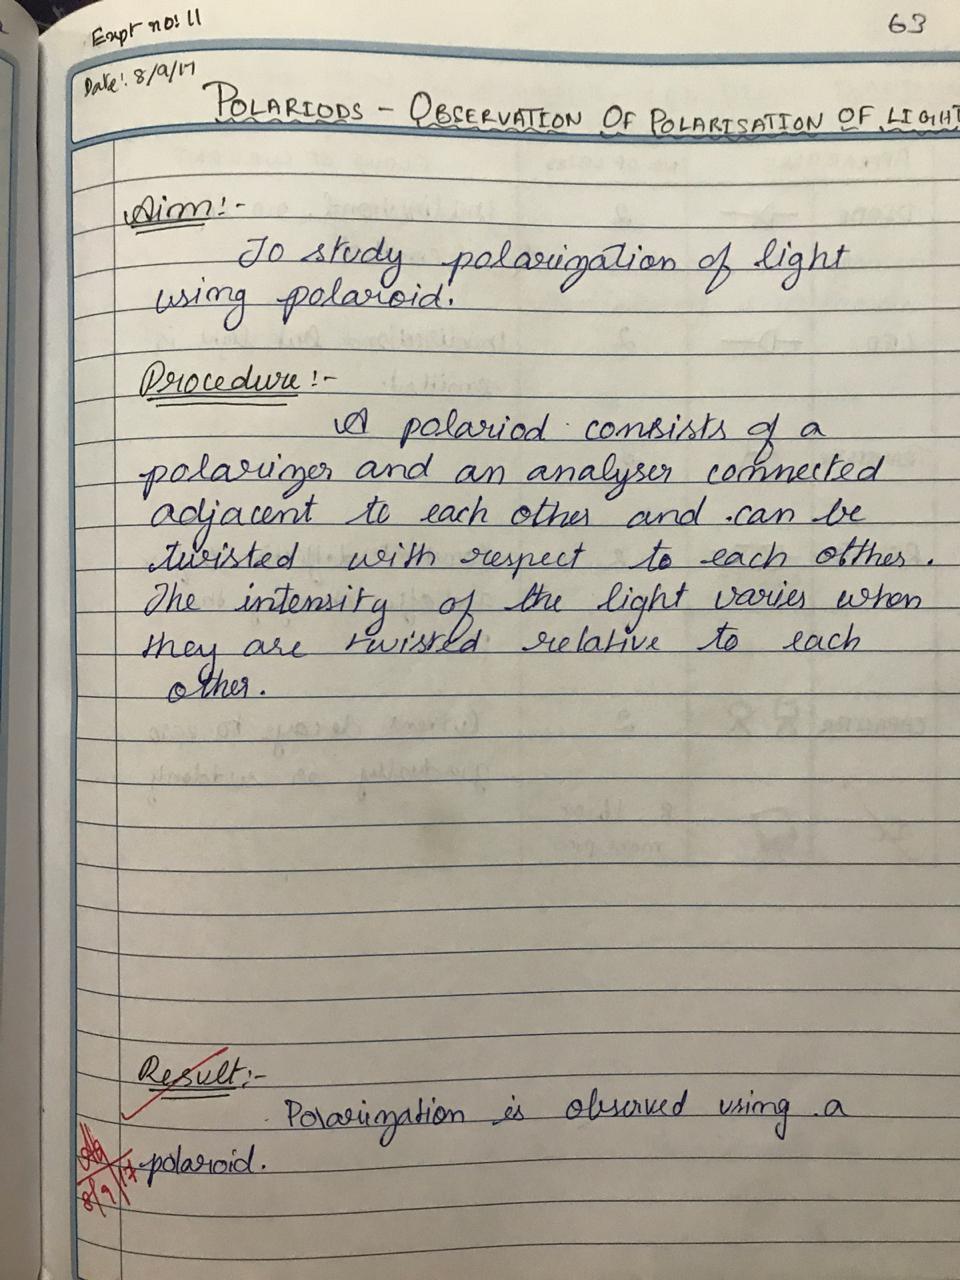 Expt no: 11
63
Date: 8/9/17
POLARIODS - OBSERVATION OF POLARISATION OF LIGHT
Aim:-
To study polarization of light
using polaroid.
Procedure:-
A polariod consists of a
polarizer and an analyser connected
adjacent to each other and can be
twisted with respect to each otther.
The intensity of the light varies when
they are twisted relative to each
other.
Result:-
Polarization is observed using a
polaroid.
8/9/17